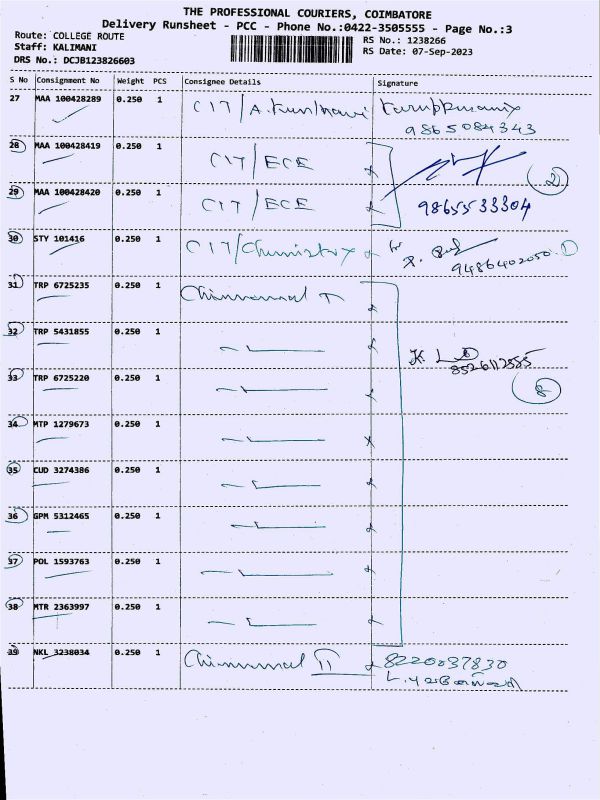 THE PROFESSIONAL COURIERS, COIMBATORE
Delivery Runsheet - PCC - Phone No.:0422-3505555 - Page No.:3
Route: COLLEGE ROUTE
Staff: KALIMANI
DRS No.: DCJB123826603
RS No.: 1238266
RS Date: 07-Sep-2023
S No Consignment No Weight PCS Consignee Details Signature
27 MAA 100428289 0.250 1 CIT/A.
9865084343
28 MAA 100428419 0.250 1 CIT/ECE
2
29 MAA 100428420 0.250 1 CIT/ECE 9865533304
30 STY 101416 0.250 1 CIT/Chemistry for 1
9486402050
31 TRP 6725235 0.250 1
32 TRP 5431855 0.250 1
K.
8526112585
33 TRP 6725220 0.250 1 8
34 MTP 1279673 0.250 1
35 CUD 3274386 0.250 1
36 GPM 5312465 0.250 1
37 POL 1593763 0.250 1
38 MTR 2363997 0.250 1
39 NKL 3238034 0.250 1 II 8220037830